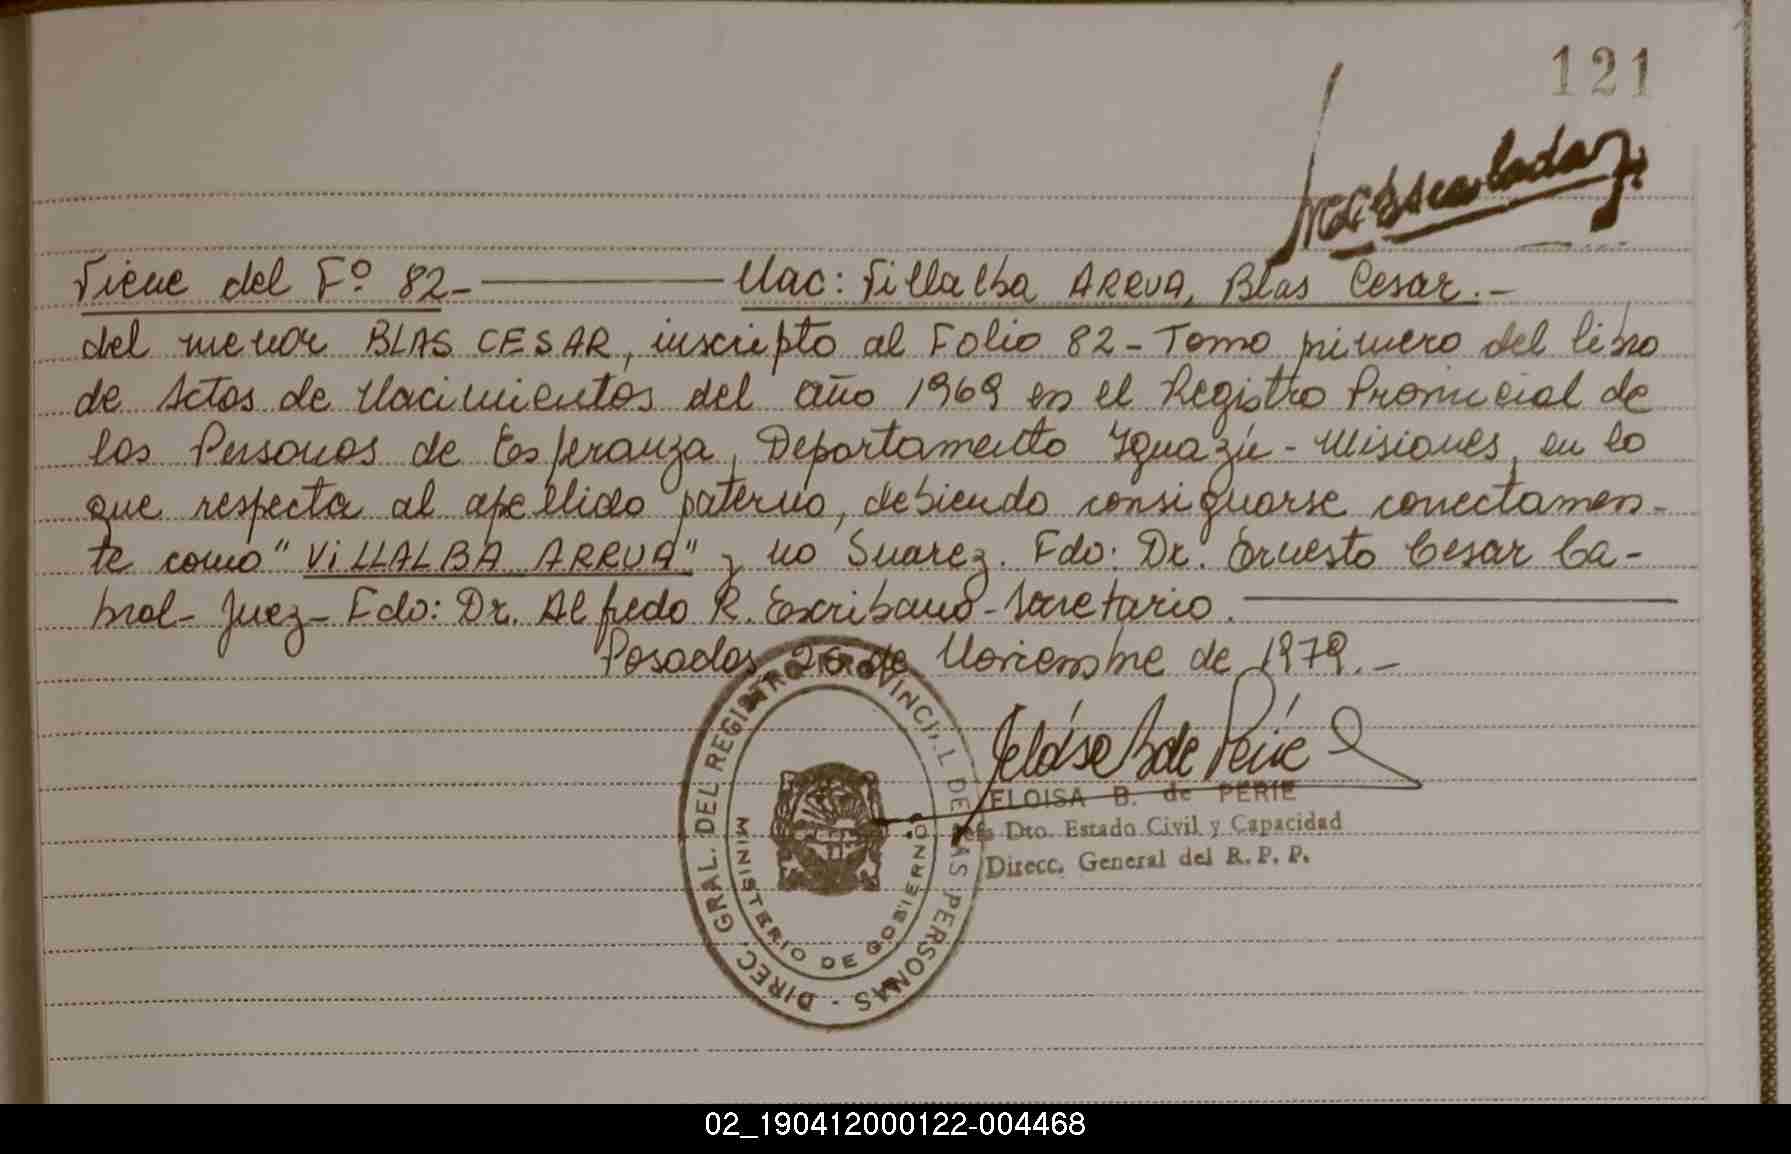 121
Viene del Fº 82.- Nac: Villalba ARRUA, Blas Cesar.-
del menor BLAS CESAR, inscripto al Folio 82 - Tomo primero del libro
de Actas de Nacimientos del año 1969 en el Registro Provincial de
las Personas de Esperanza, Departamento Iguazú - Misiones, en lo
que respecta al apellido paterno, debiendo consignarse correctamen-
te como "VILLALBA ARRUA" y no Suarez. Fdo: Dr. Ernesto Cesar Ca-
bral - Juez - Fdo: Dr. Alfredo R. Escribano - Secretario.
Posadas 26 de Noviembre de 1979.-
ELOISA B. de PERIE
Jefe Dto. Estado Civil y Capacidad
Direcc. General del R. P. P.
DIREC. GRAL. DEL REGISTRO PROVINCIAL DE LAS PERSONAS -
MINISTERIO DE GOBIERNO
02_190412000122-004468